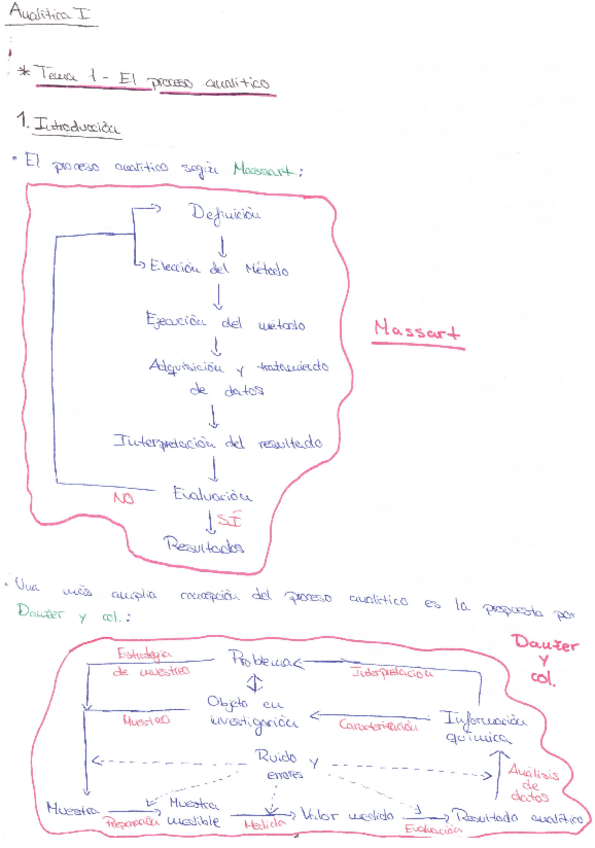 Analítica I
* Tema 1 - El proceso analítico
1. Introducción
• El proceso analítico según Massart:
Definición
Elección del Método
Ejecución del metodo
Massart
Adquisición y tratamiendo
de datos
Interpretación del resultado
Evaluación
NO
SÍ
Resultados
• Una más amplia concepción del proceso analítico es la propuesta por
Danzer y col.:
Danzer
y
col.
Estrategia
de muestreo
Problema
Interpretación
Objeto en
investigación
Muestreo
Caracterización
Información
química
Ruido y
errores
Análisis
de
datos
Muestra
Preparación
Muestra
medible
Medida
Valor medido
Evaluación
Resultado analítico